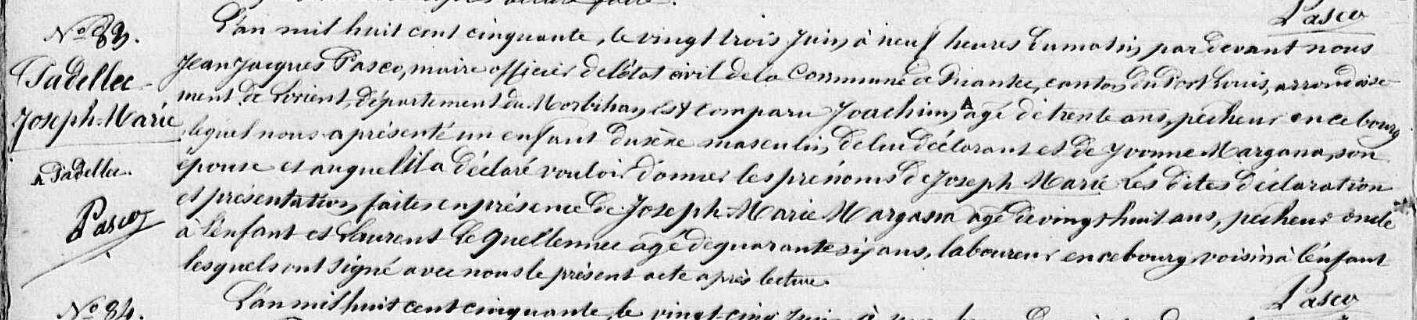 Pasco
N° 83.
Tadellec
Joseph-Marie
A Tadellec.
Pasco
L'an mil huit cent cinquante, le vingt trois Juin, à neuf heures du matin, par devant nous
Jean Jacques Pasco, maire officier de l'état civil de la Commune de Riantec, canton du Port Louis, arrondisse-
ment de Lorient, département du Morbihan, est comparu Joachim A agé de trente ans, pêcheur en ce bourg
lequel nous a présenté un enfant du sexe masculin, de lui déclarant et de Yvonne Margana, son
épouse et auquel il a déclaré vouloir donner les prénoms de Joseph Marie Les dites déclaration
et présentation faites en présence de Joseph Marie Margana agé de vingt huit ans, pêcheur oncle
à l'enfant et Laurent Le Quellennec agé de quarante six ans, laboureur en ce bourg, voisin à l'enfant
lesquels ont signé avec nous le présent acte après lecture.
Pasco
N° 84.
L'an mil huit cent cinquante, le vingt cinq Juin à